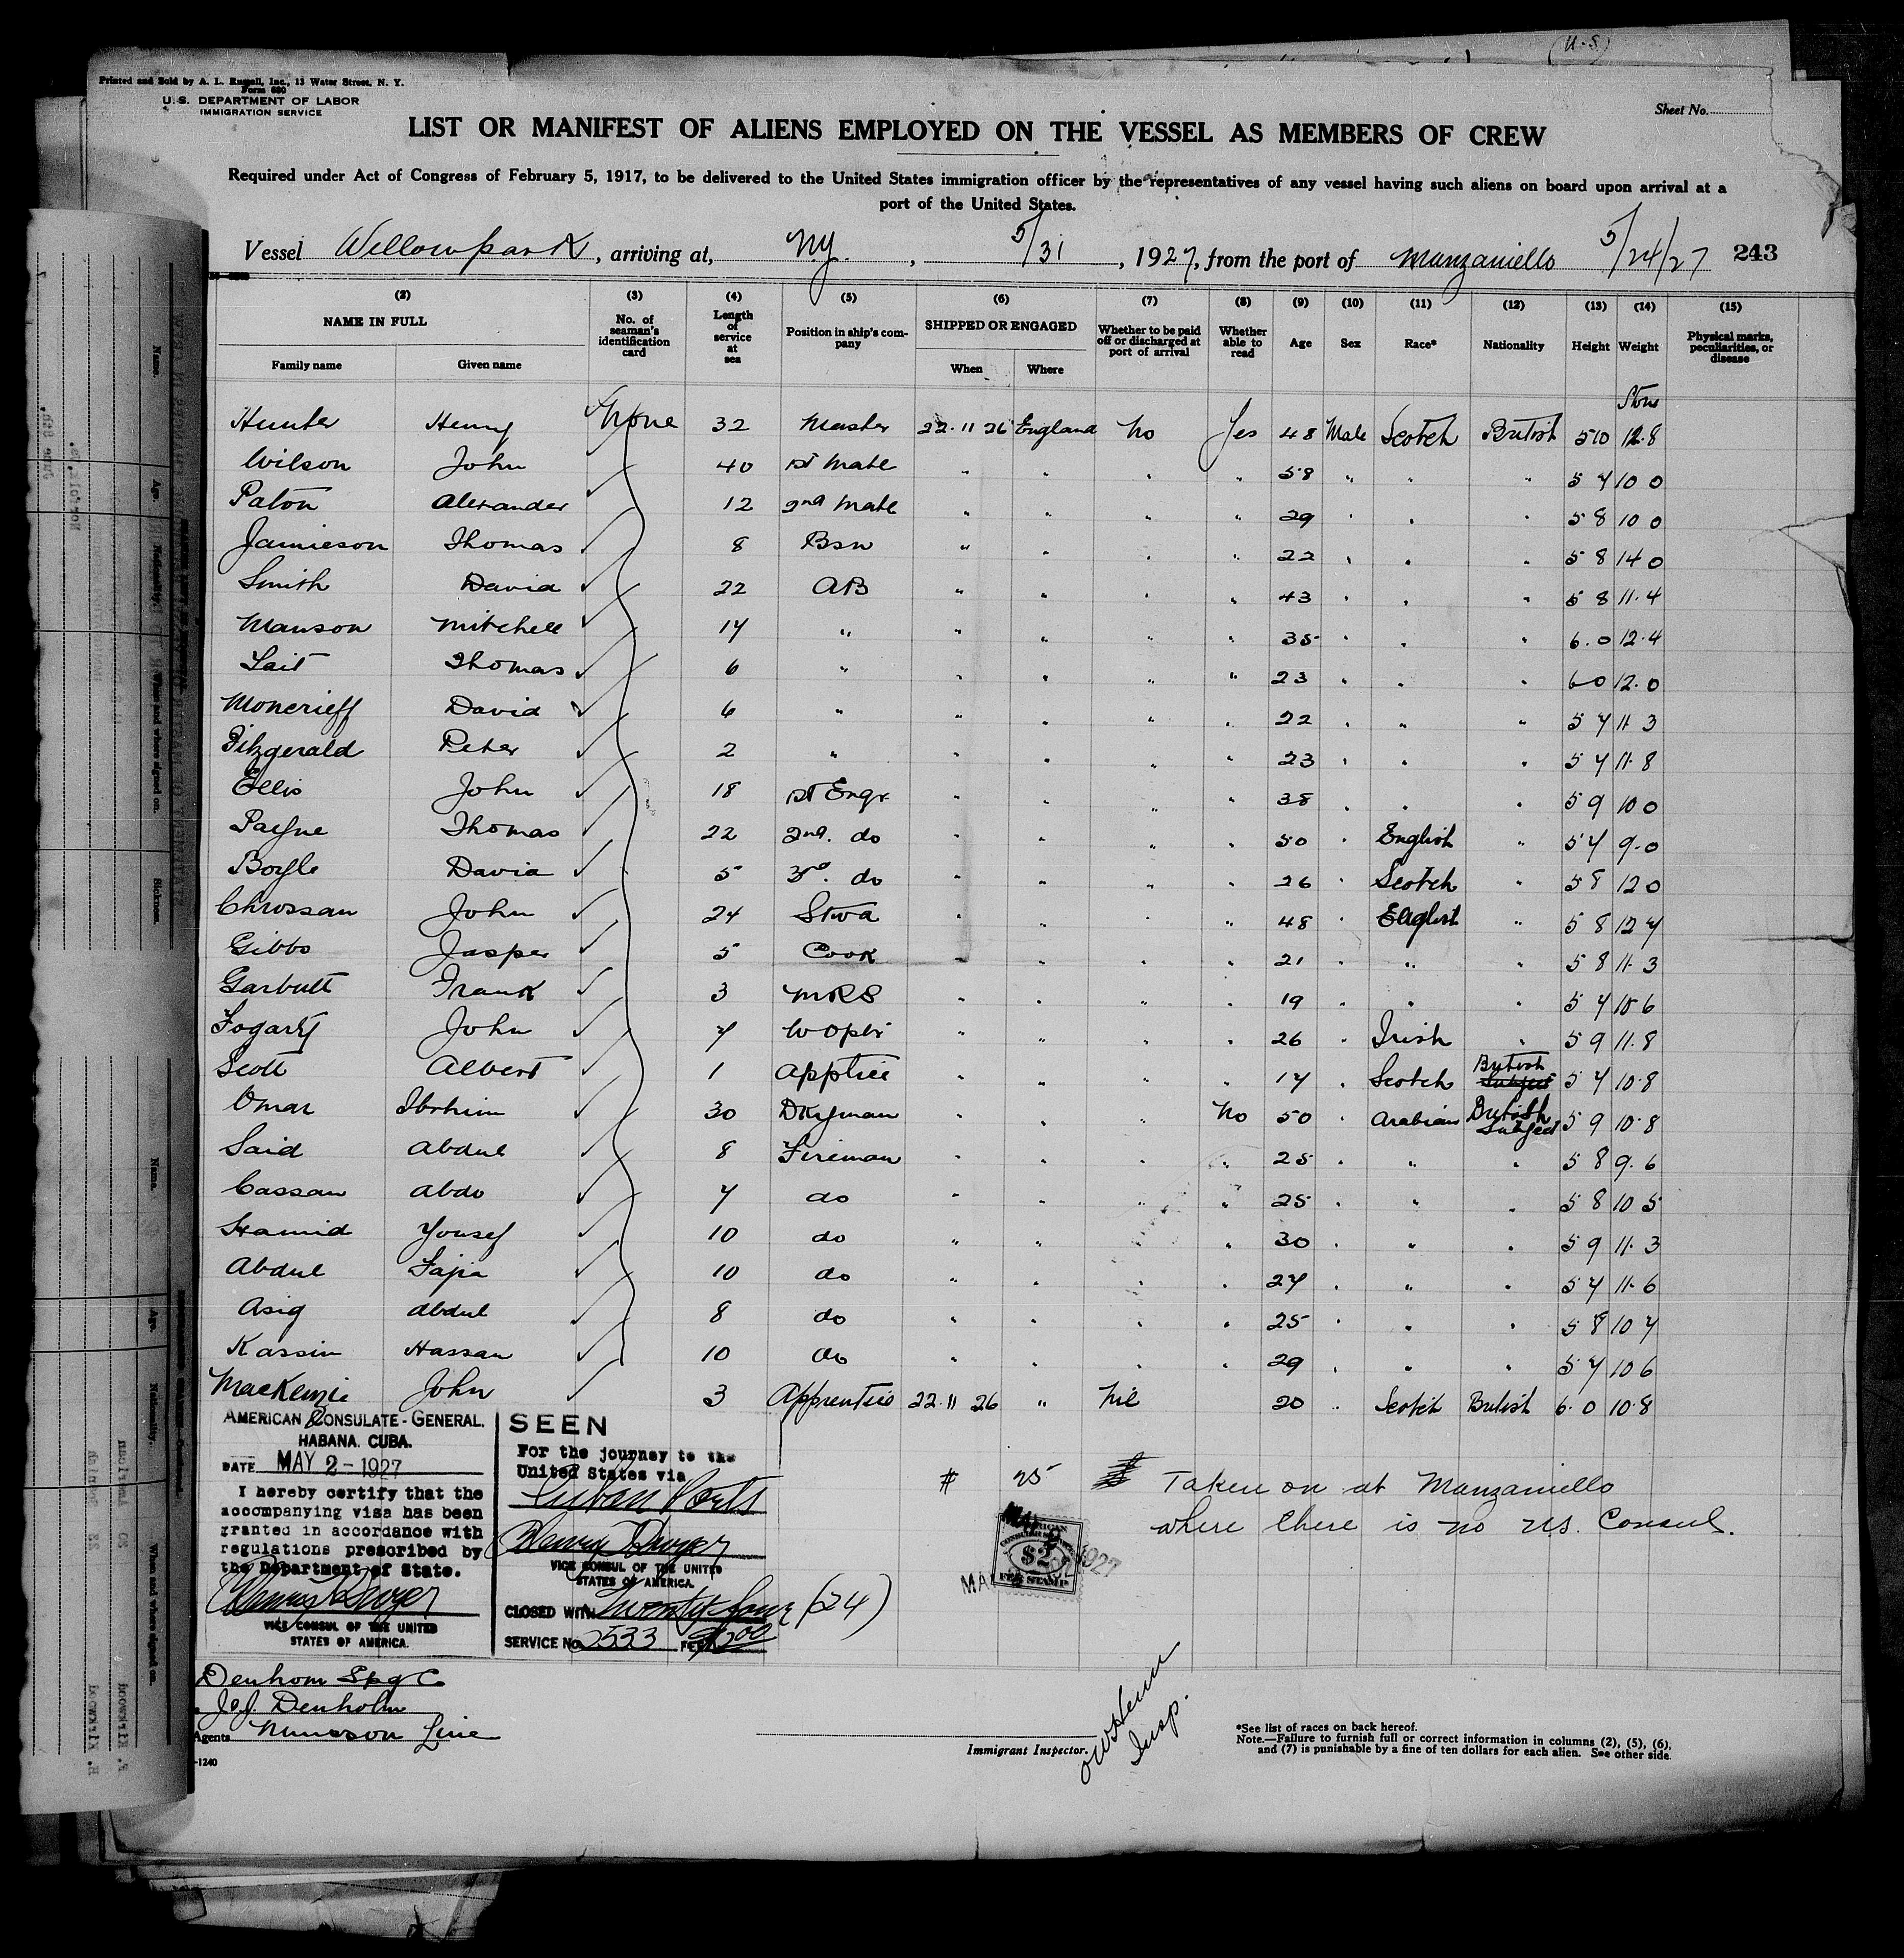 (U.S.)
Printed and Sold by A. L. Russell, Inc., 13 Water Street, N. Y.
Form 680
U. S. DEPARTMENT OF LABOR
IMMIGRATION SERVICE
Sheet No.
LIST OR MANIFEST OF ALIENS EMPLOYED ON THE VESSEL AS MEMBERS OF CREW
Required under Act of Congress of February 5, 1917, to be delivered to the United States immigration officer by the representatives of any vessel having such aliens on board upon arrival at a
port of the United States.
Vessel Willowpark, arriving at, N.Y., 5/31, 1927, from the port of Manzaniello 5/24/27 243
(2) (3) (4) (5) (6) (7) (8) (9) (10) (11) (12) (13) (14) (15)
NAME IN FULL No. of seaman's identification card Length of service at sea Position in ship's company SHIPPED OR ENGAGED Whether to be paid off or discharged at port of arrival Whether able to read Age Sex Race* Nationality Height Weight Physical marks, peculiarities, or disease
Family name Given name When Where
Stone
Hunter Henry None 32 Master 22.11 26 England No Yes 48 Male Scotch British 5 10 12.8
Wilson John 40 1st Mate " " " " 58 " " " 5 7 10 0
Paton Alexander 12 2nd Mate " " " " 29 " " " 5 8 10 0
Jamieson Thomas 8 Bsn " " " " 22 " " " 5 8 14 0
Smith David 22 AB " " " " 43 " " " 5 8 11.4
Manson Mitchell 14 " " " " " 35 " " " 6.0 12.4
Tait Thomas 6 " " " " " 23 " " " 6 0 12.0
Moncrieff David 6 " " " " " 22 " " " 5 7 11 3
Fitzgerald Peter 2 " " " " " 23 " " " 5 7 11.8
Ellis John 18 1st Engr " " " " 38 " " " 5 9 10 0
Payne Thomas 22 2nd. do " " " " 50 " English " 5 7 9.0
Boyle David 5 3rd. do " " " " 26 " Scotch " 5 8 12 0
Chrossan John 24 Stwd " " " " 48 " English " 5 8 12 7
Gibbs Jasper 5 Cook " " " " 21 " " " 5 8 11.3
Garbutt Frank 3 MRS " " " " 19 " " " 5 7 10 6
Fogarty John 7 W Optr " " " " 26 " Irish " 5 9 11.8
Scott Albert 1 Apptice " " " " 17 " Scotch British Subject 5 7 10.8
Omar Ibrhim 30 Dkyman " " " No 50 " Arabian British Subject 5 9 10.8
Said Abdul 8 Fireman " " " " 25 " " " 5 8 9.6
Cassan Abdo 7 do " " " " 25 " " " 5 8 10 5
Hamid Yousef 10 do " " " " 30 " " " 5 9 11.3
Abdul Fajia 10 do " " " " 27 " " " 5 7 11.6
Asig Abdul 8 do " " " " 25 " " " 5 8 10 7
Kassim Hassan 10 do " " " " 29 " " " 5 7 10 6
MacKenzie John 3 Apprentis 22.11 26 " Nil 20 " Scotch British 6.0 10.8
AMERICAN CONSULATE-GENERAL.
HABANA. CUBA.
DATE MAY 2-1927
I hereby certify that the
accompanying visa has been
granted in accordance with
regulations prescribed by
the Department of State.
VICE CONSUL OF THE UNITED
STATES OF AMERICA.
SEEN
For the journey to the
United States via
Cuban Ports
VICE CONSUL OF THE UNITED
STATES OF AMERICA.
CLOSED WITH Twenty four (24)
SERVICE No. 2533 FEE $2.00
# 25
Taken on at Manzaniello
where there is no U.S. Consul.
AMERICAN
$2
FEE STAMP
1927
Denhom Spg C
J&J. Denholm
Agents Munson Line
-1240
Immigrant Inspector.
Insp.
*See list of races on back hereof.
Note.—Failure to furnish full or correct information in columns (2), (5), (6),
and (7) is punishable by a fine of ten dollars for each alien. See other side.